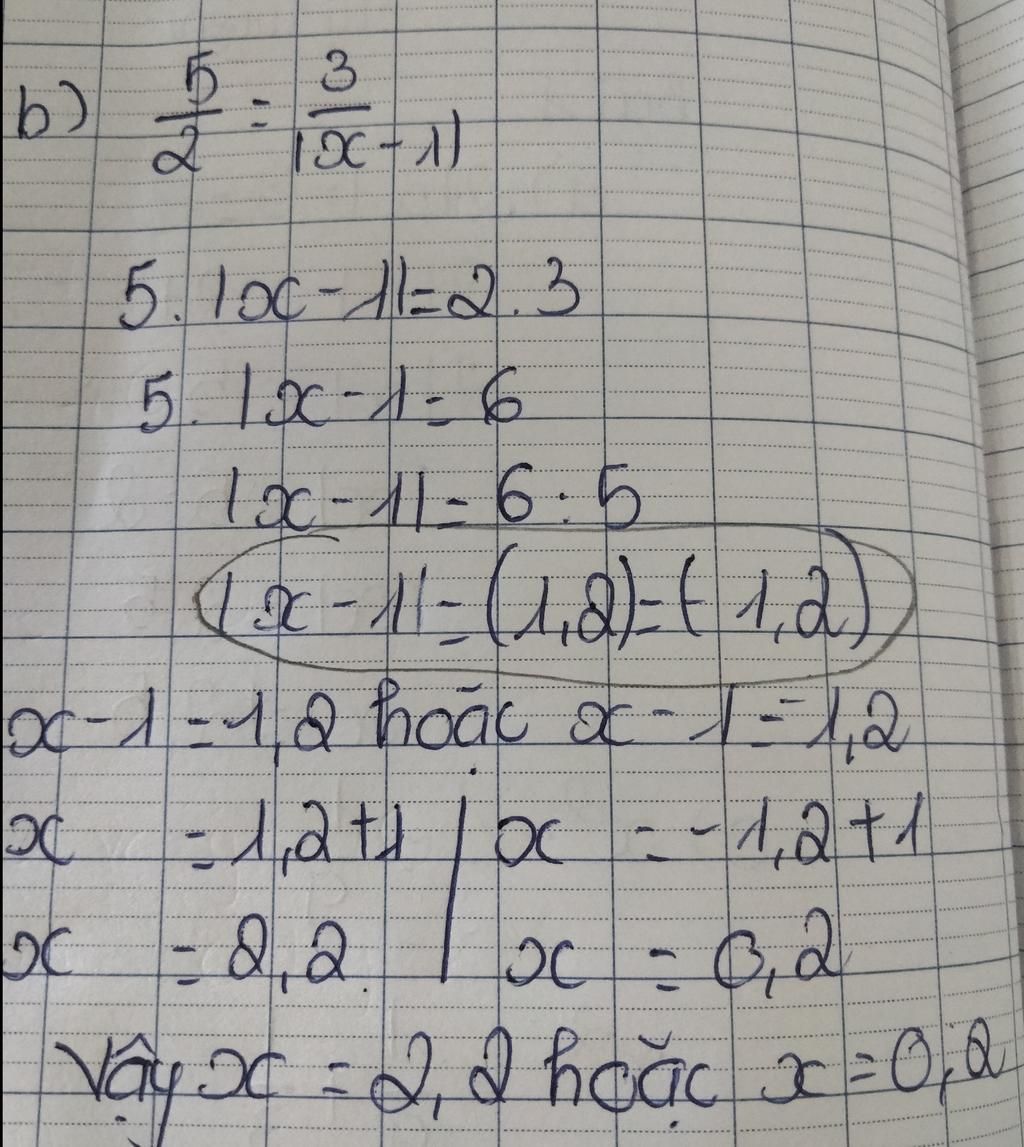 b) 5/2 = 3/|x-1|
5. |x-1|=2.3
5. |x-1= 6
|x-1|= 6:5
|x-1|=(1,2)=(-1,2)
x-1=1,2 hoặc x-1=-1,2
x =1,2+1 | x = -1,2+1
x = 2,2. | x = 0,2
Vậy x = 2,2 hoặc x=0,2